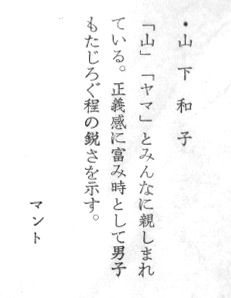 •山下和子
「山」「ヤマ」とみんなに親しまれ
ている。正義感に富み時として男子
もたじろぐ程の鋭さを示す。
マント